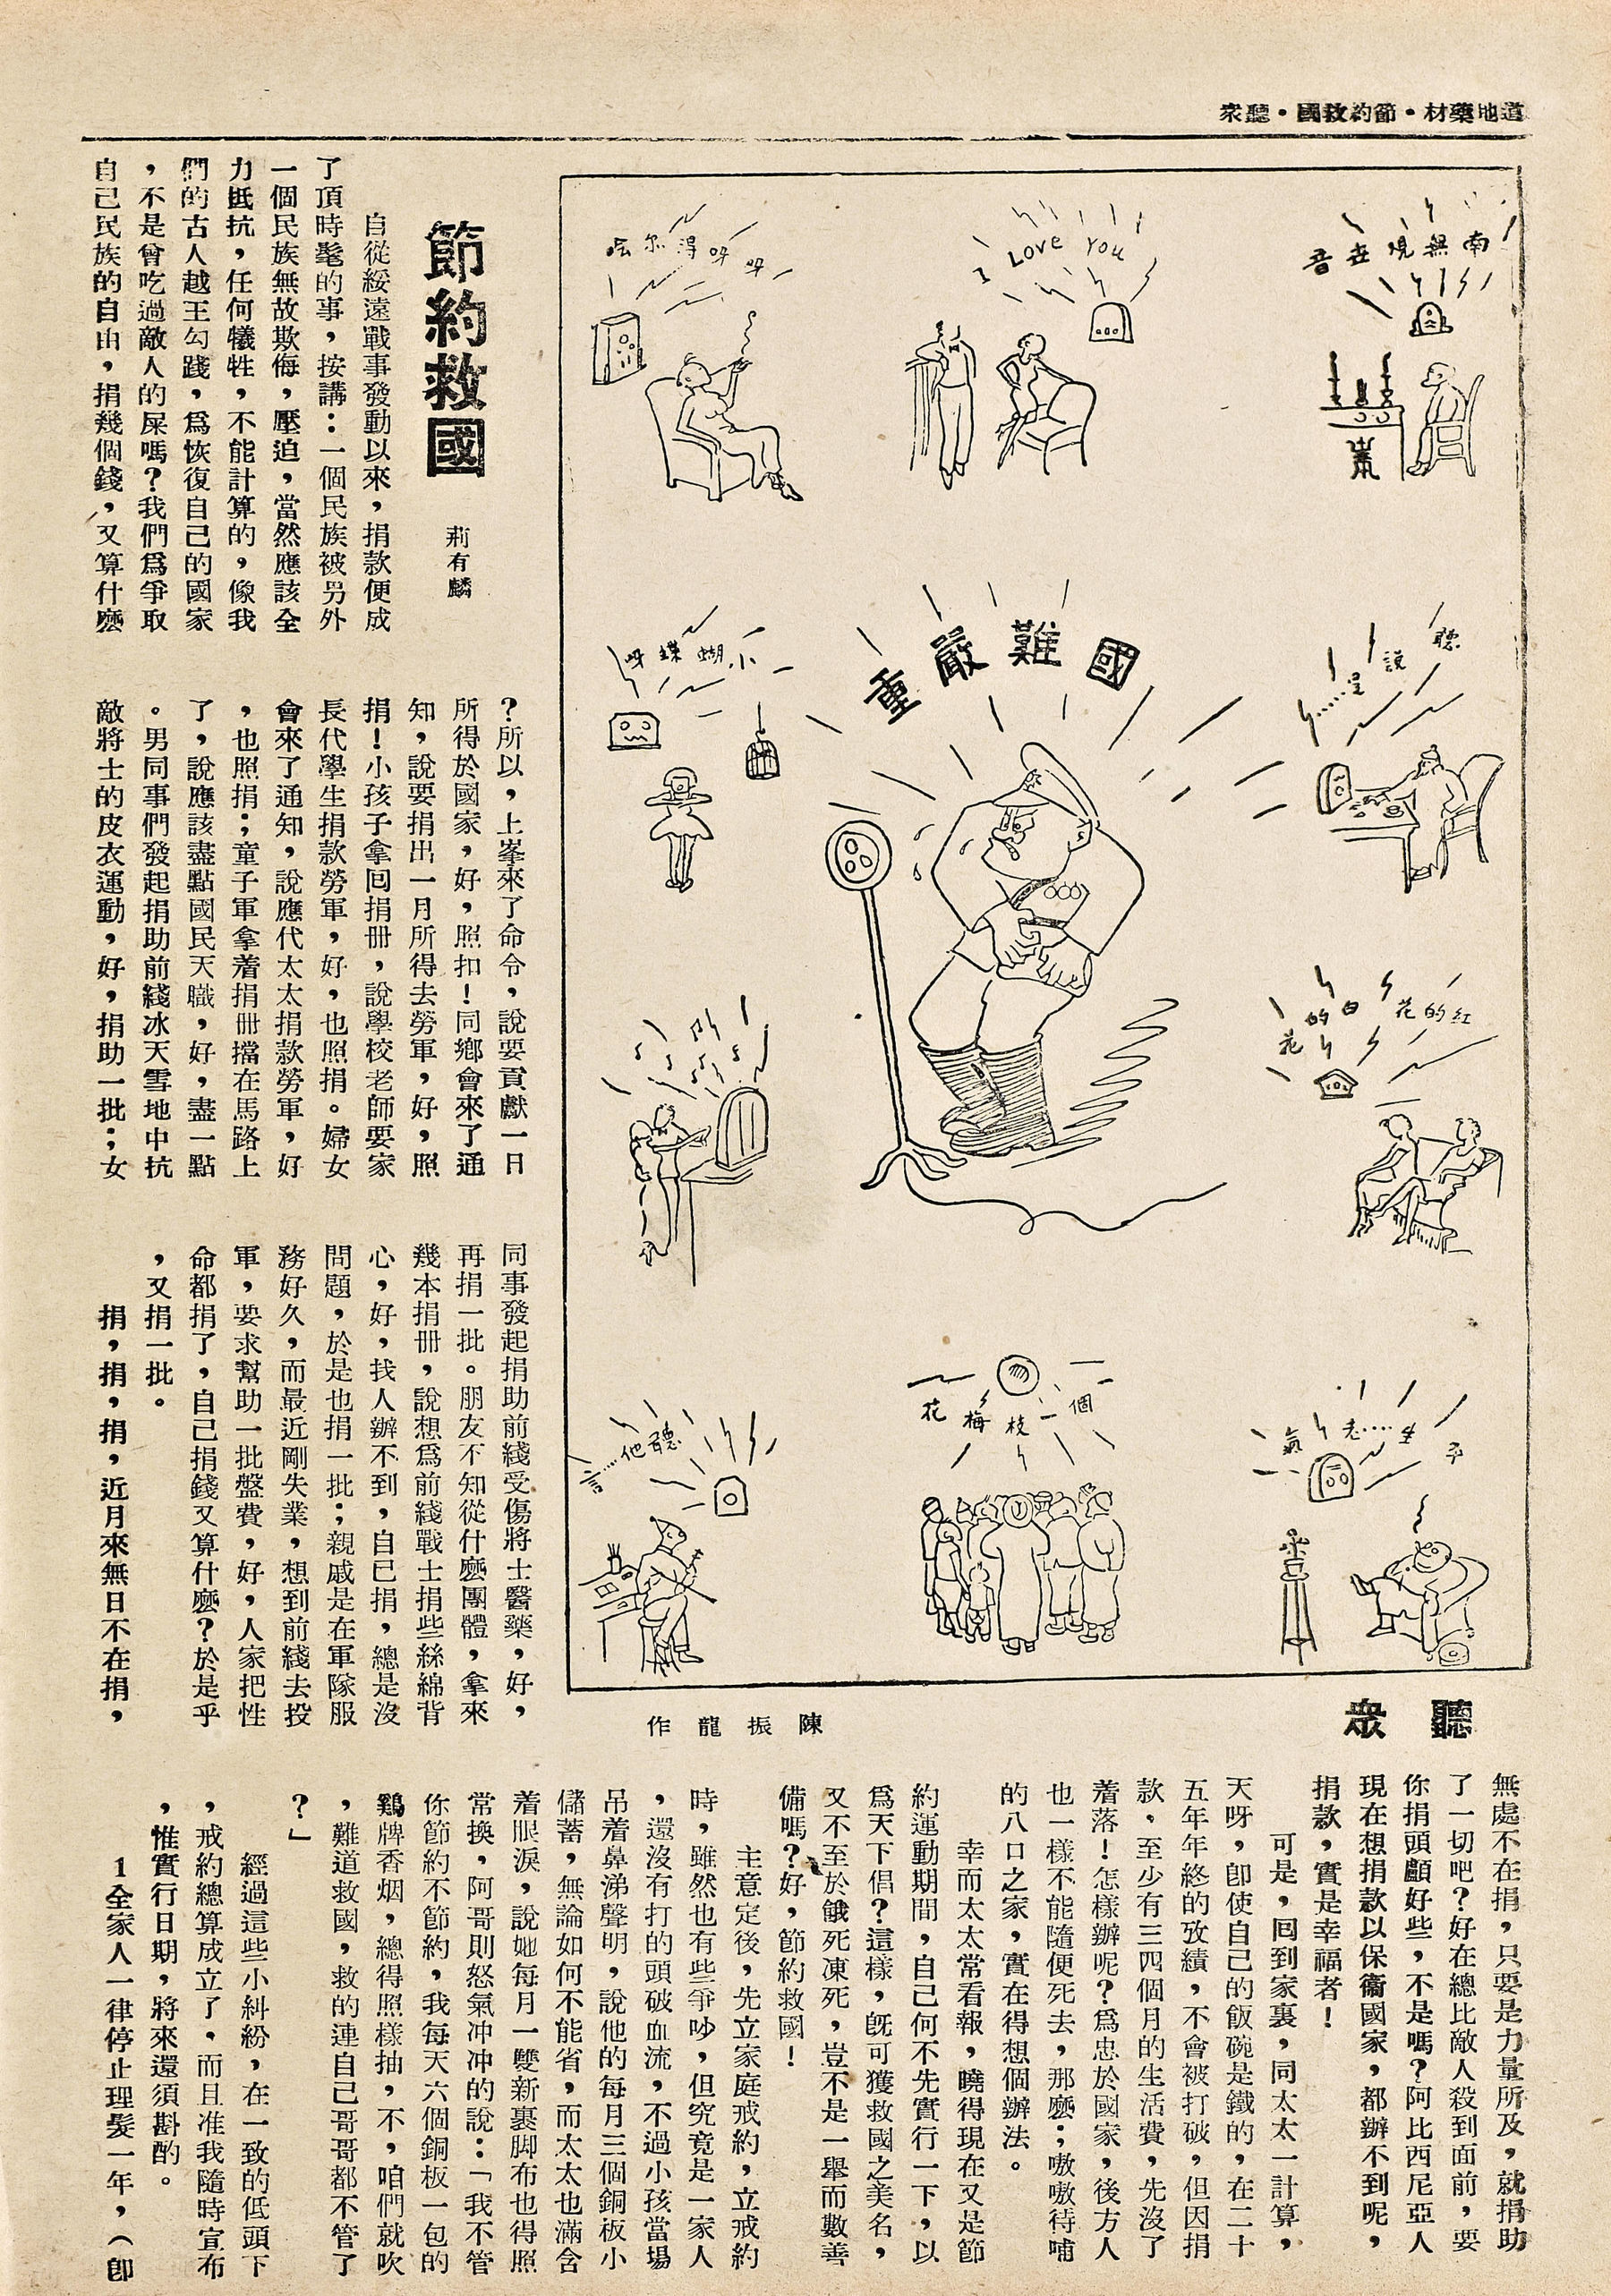 道地藥材・節約救國・聽衆
南無觀世音
I Love You
哈尔得呀呀
國難嚴重
聽說……呈
小蝴蝶呀
紅的花白的花
平生……老氣
個一枝梅花
聽他……言
聽衆
陳振龍作
節約救國
荊有麟
自從綏遠戰事發動以來，捐款便成
了頂時髦的事，按講：一個民族被另外
一個民族無故欺侮，壓迫，當然應該全
力抵抗，任何犧牲，不能計算的，像我
們的古人越王勾踐，爲恢復自己的國家
，不是曾吃過敵人的屎嗎？我們爲爭取
自己民族的自由，捐幾個錢，又算什麽
？所以，上峯來了命令，說要貢獻一日
所得於國家，好，照扣！同鄉會來了通
知，說要捐出一月所得去勞軍，好，照
捐！小孩子拿回捐册，說學校老師要家
長代學生捐款勞軍，好，也照捐。婦女
會來了通知，說應代太太捐款勞軍，好
，也照捐；童子軍拿着捐册擋在馬路上
了，說應該盡點國民天職，好，盡一點
。男同事們發起捐助前綫冰天雪地中抗
敵將士的皮衣運動，好，捐助一批；女
同事發起捐助前綫受傷將士醫藥，好，
再捐一批。朋友不知從什麽團體，拿來
幾本捐册，說想爲前綫戰士捐些絲綿背
心，好，找人辦不到，自己捐，總是沒
問題，於是也捐一批；親戚是在軍隊服
務好久，而最近剛失業，想到前綫去投
軍，要求幫助一批盤費，好，人家把性
命都捐了，自己捐錢又算什麽？於是乎
，又捐一批。
捐，捐，捐，近月來無日不在捐，
無處不在捐，只要是力量所及，就捐助
了一切吧？好在總比敵人殺到面前，要
你捐頭顱好些，不是嗎？阿比西尼亞人
現在想捐款以保衞國家，都辦不到呢，
捐款，實是幸福者！
可是，回到家裏，同太太一計算，
天呀，卽使自己的飯碗是鐵的，在二十
五年年終的攷績，不會被打破，但因捐
款，至少有三四個月的生活費，先沒了
着落！怎樣辦呢？爲忠於國家，後方人
也一樣不能隨便死去，那麽；嗷嗷待哺
的八口之家，實在得想個辦法。
幸而太太常看報，曉得現在又是節
約運動期間，自己何不先實行一下，以
爲天下倡？這樣，旣可獲救國之美名，
又不至於餓死凍死，豈不是一舉而數善
備嗎？好，節約救國！
主意定後，先立家庭戒約，立戒約
時，雖然也有些爭吵，但究竟是一家人
，還沒有打的頭破血流，不過小孩當場
吊着鼻涕聲明，說他的每月三個銅板小
儲蓄，無論如何不能省，而太太也滿含
着眼淚，說她每月一雙新裹脚布也得照
常換，阿哥則怒氣冲冲的說：「我不管
你節約不節約，我每天六個銅板一包的
鷄牌香烟，總得照樣抽，不，咱們就吹
，難道救國，救的連自己哥哥都不管了
？」
經過這些小糾紛，在一致的低頭下
，戒約總算成立了，而且准我隨時宣布
，惟實行日期，將來還須斟酌。
1全家人一律停止理髮一年，（卽